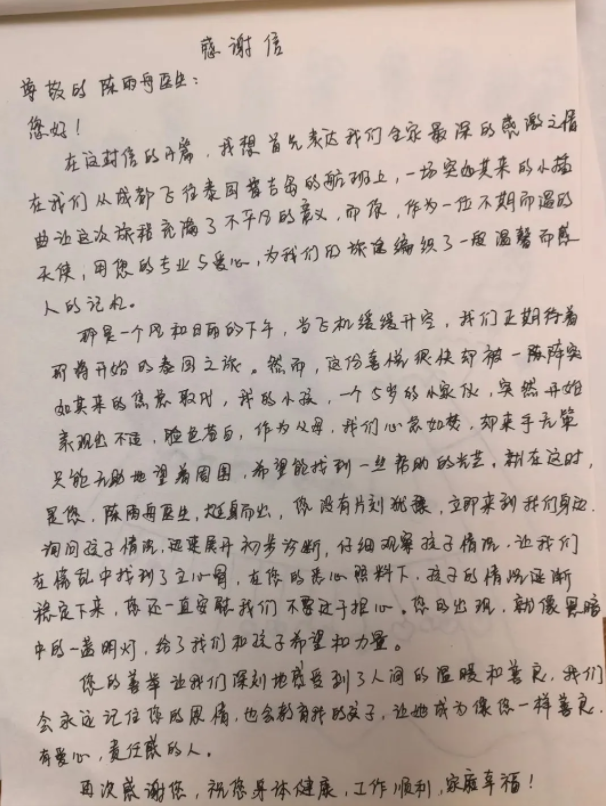 感谢信
尊敬的陈雨舟医生：
您好！
在这封信的开篇，我想首先表达我们全家最深的感激之情
在我们从成都飞往泰国普吉岛的航班上，一场突如其来的小插
曲让这次旅程充满了不平凡的意义，而你，作为一位不期而遇的
天使，用您的专业与爱心，为我们的旅途编织了一段温馨而感
人的记忆。
那是一个风和日丽的下午，当飞机缓缓升空，我们正期待着
即将开始的泰国之旅。然而，这份喜悦很快却被一阵阵突
如其来的焦虑取代，我的小孩，一个5岁的小家伙，突然开始
表现出不适，脸色苍白，作为父母，我们心急如焚，却束手无策
只能无助地望着周围，希望能找到一丝帮助的光芒。就在这时，
是您，陈雨舟医生，挺身而出，你没有片刻犹豫，立即来到我们身边，
询问孩子情况，迅速展开初步诊断，仔细观察孩子情况，让我们
在慌乱中找到了主心骨，在你的悉心照料下，孩子的情况逐渐
稳定下来，您还一直安慰我们不要过于担心。您的出现，就像黑暗
中的一盏明灯，给了我们和孩子希望和力量。
您的善举让我们深刻地感受到了人间的温暖和善良，我们
会永远记住您的恩情，也会教育我的孩子，让她成为像您一样善良，
有爱心，责任感的人。
再次感谢您，祝您身体健康，工作顺利，家庭幸福！